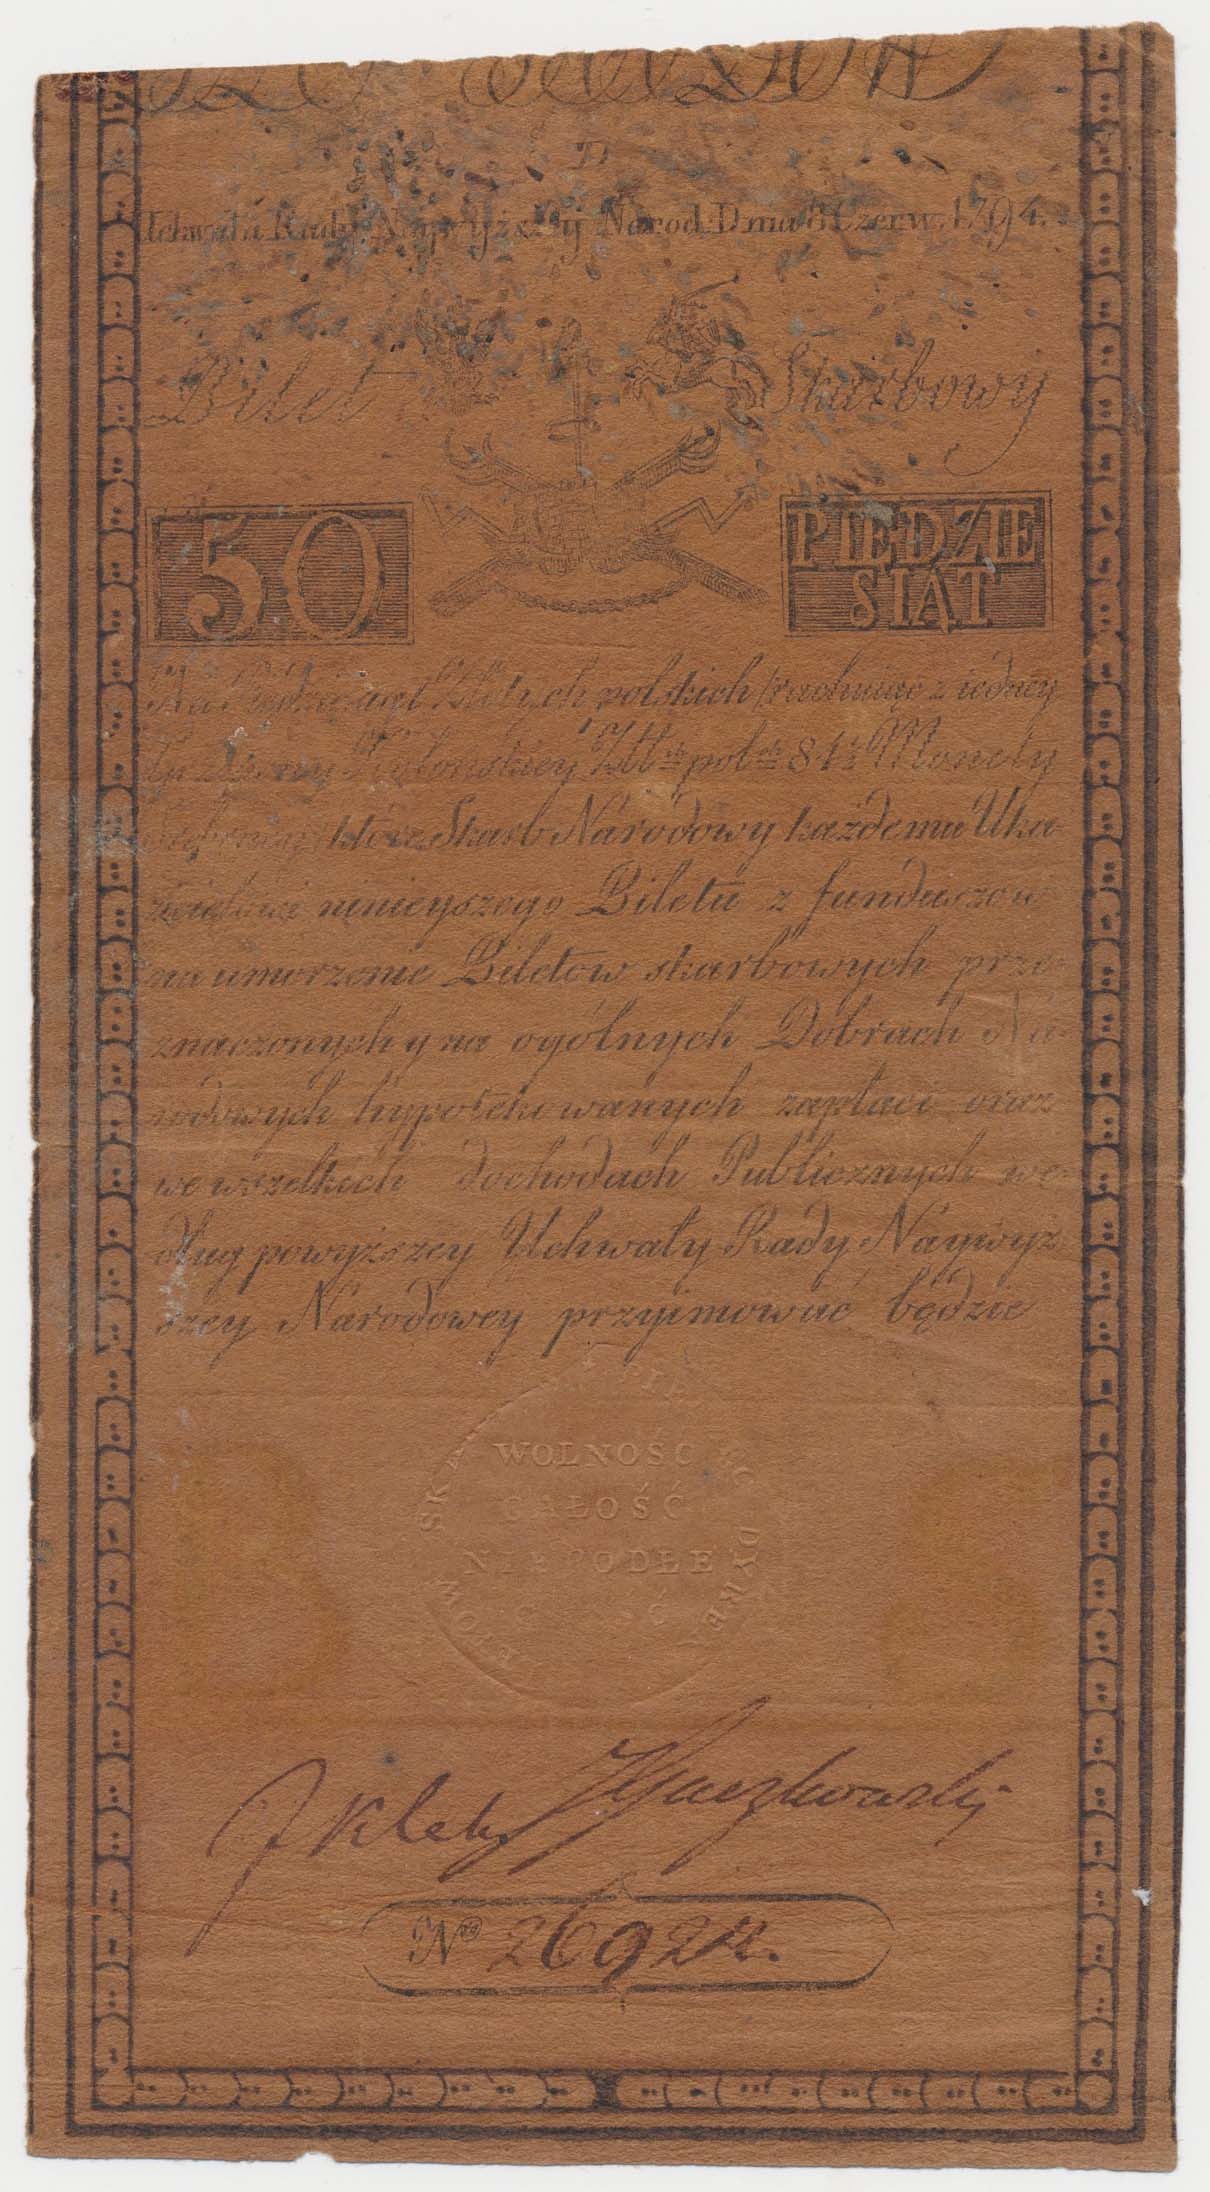 D
Uchwała Rady Naywyższey Narod. Dnia 8 Czerw. 1794.
Bilet Skarbowy
50
PIĘDZIE
SIAT
Na złotych polskich /rachuiąc z iedney
Kolonskiey Złł.ch pol.ch 84½ Monety
które Skarb Národowy każdemu Uka-
zicielowi ninieyszego Biletu z funduszow
na umorzenie Biletow skarbowych prze-
znaczonych y na ogólnych Dobrach Na-
rodowych hypotekowanych zapłaci oraz
we wszelkich dochodach Publicznych we-
dług powyższey Uchwały Rady Naywyż
szey Narodowey przyimowac będzie
WOLNOŚĆ
CAŁOŚĆ
NIEPODŁE
DYREK
BILETOW SK
J Klek
No 26921.